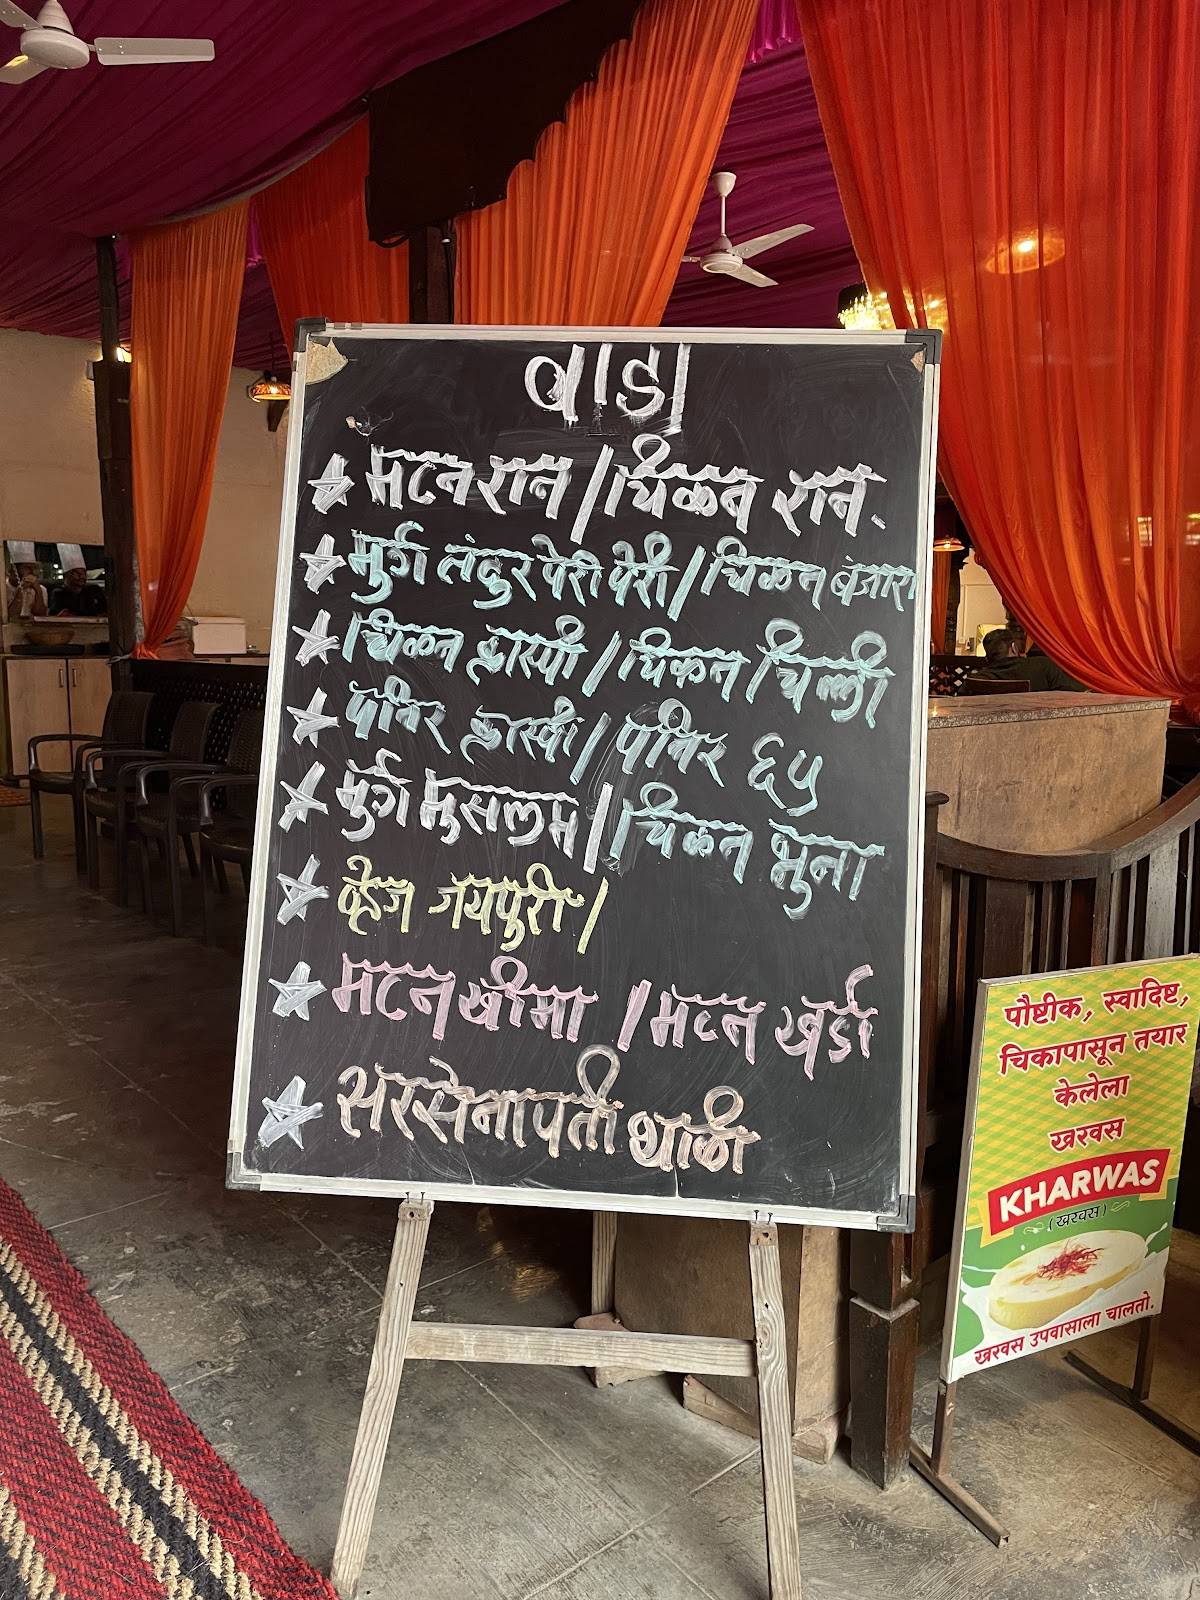 वाडा
मटन रान / चिकन रान.
मुर्ग तंदुर पेरी पेरी / चिकन बंजारा
चिकन क्रास्पी / चिकन चिली
पनिर क्रास्पी / पनिर ६५
मुर्ग मुसलम / चिकन भुना
व्हेज जयपुरी /
मटन खीमा / मटन खर्डा
सरसेनापती थाळी
पौष्टीक, स्वादिष्ट,
चिकापासून तयार
केलेला
खरवस
KHARWAS
(खरवस)
खरवस उपवासाला चालतो.